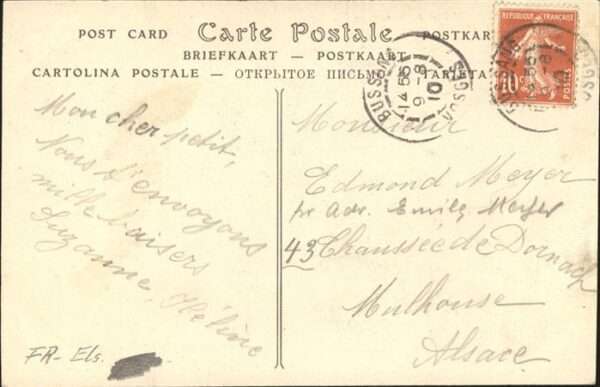 POST CARD
Carte Postale
POSTKARTE
BRIEFKAART — POSTKAART
CARTOLINA POSTALE — ОТКРЫТОЕ ПИСЬМО
BUSSANG
14 55
9 - 8
10
VOSGES
REPUBLIQUE FRANÇAISE
10c
POSTES
Mon cher petit,
Nous t'envoyons
mille baisers
Suzanne, Hélène
Monsieur
Edmond Meyer
pr Adr. Emile Meyer
43 Chaussée de Dornach
Mulhouse
Alsace
FR - Els.